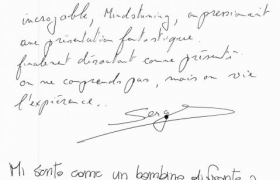 incroyable, Mindstuning, impressionnant
une présentation fantastique.
finalement déroutant comme présenté
on ne comprends pas, mais on vie
l'expérience..
Serge
Mi sento come un bambino difronte a